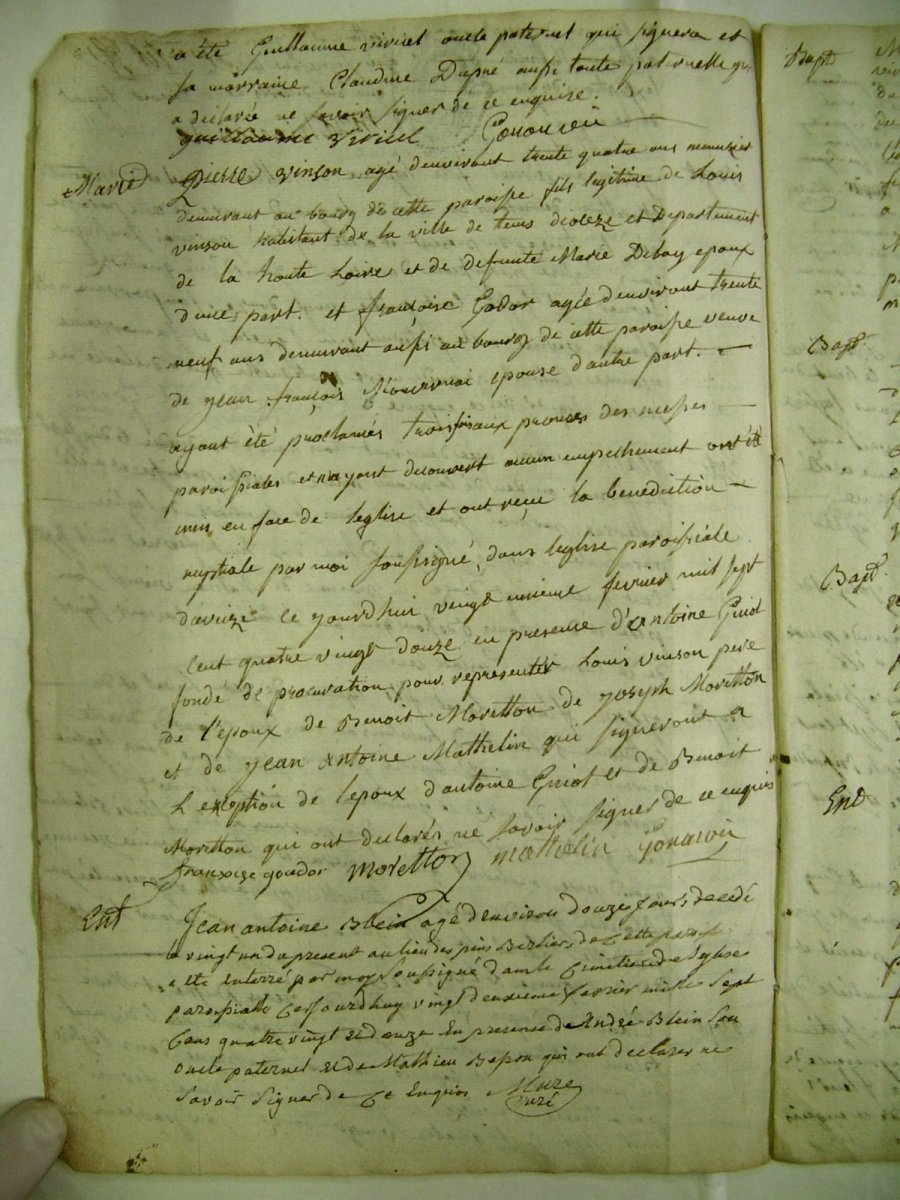 a été Guillaume viriel oncle paternel qui signera et
sa marraine Claudine Dupré aussi tante paternelle qui
a declarée ne savoir signer de ce enquise.
guillaume viriel
Marié
Pierre vinson agé denviront trente quatre ans menuizier
demeurant au bourg de cette paroisse fils legitime de Louis
vinson habitant de la ville de tens dioceze et Departement
de la haute Loire et de defunte Marie Debay epoux
dune part. et francoise Godor agée denviront trente
neuf ans demeurant aussi au bourg de cette paroisse veuve
de jean françois epouse dautre part.
ayant été proclamés trois fois aux prones des messes
paroissiales et nayant decouvert aucun empechement ont été
unis en face de leglise et ont reçu la benediction
nuptiale par moi soussigné dans leglise paroissiale
daveize ce jourdhui vingt unieme fevrier mil sept
cent quatre vingt douze en presence d'antoine Guiot
fondé de procuration pour representer Louis vinson pere
de l'epoux de Benoit Moretton de joseph Moretton
et de jean antoine Mathelin qui signeront a
Lexeption de lepoux d'antoine Guiot et de Benoit
Moretton qui ont declarés ne savoir signer de ce enquis
françoise goudor moretton mathelin
Ent
Jean antoine Blein agé d'environ douze jours decedé
vingt un du present au lieu des pins de cette parse
a ete enterré par moy soussigné dans le cimetiere de leglise
paroissialle cejourdhuy vingt deuxieme fevrier mille sept
Cens quatre vingt et douze En presence de André Blein son
oncle paternel et de Mathieu Besson qui ont declarer ne
savoir signer de ce Enquis Muze
curé
Bapt
Bapt
Bapt
Ent